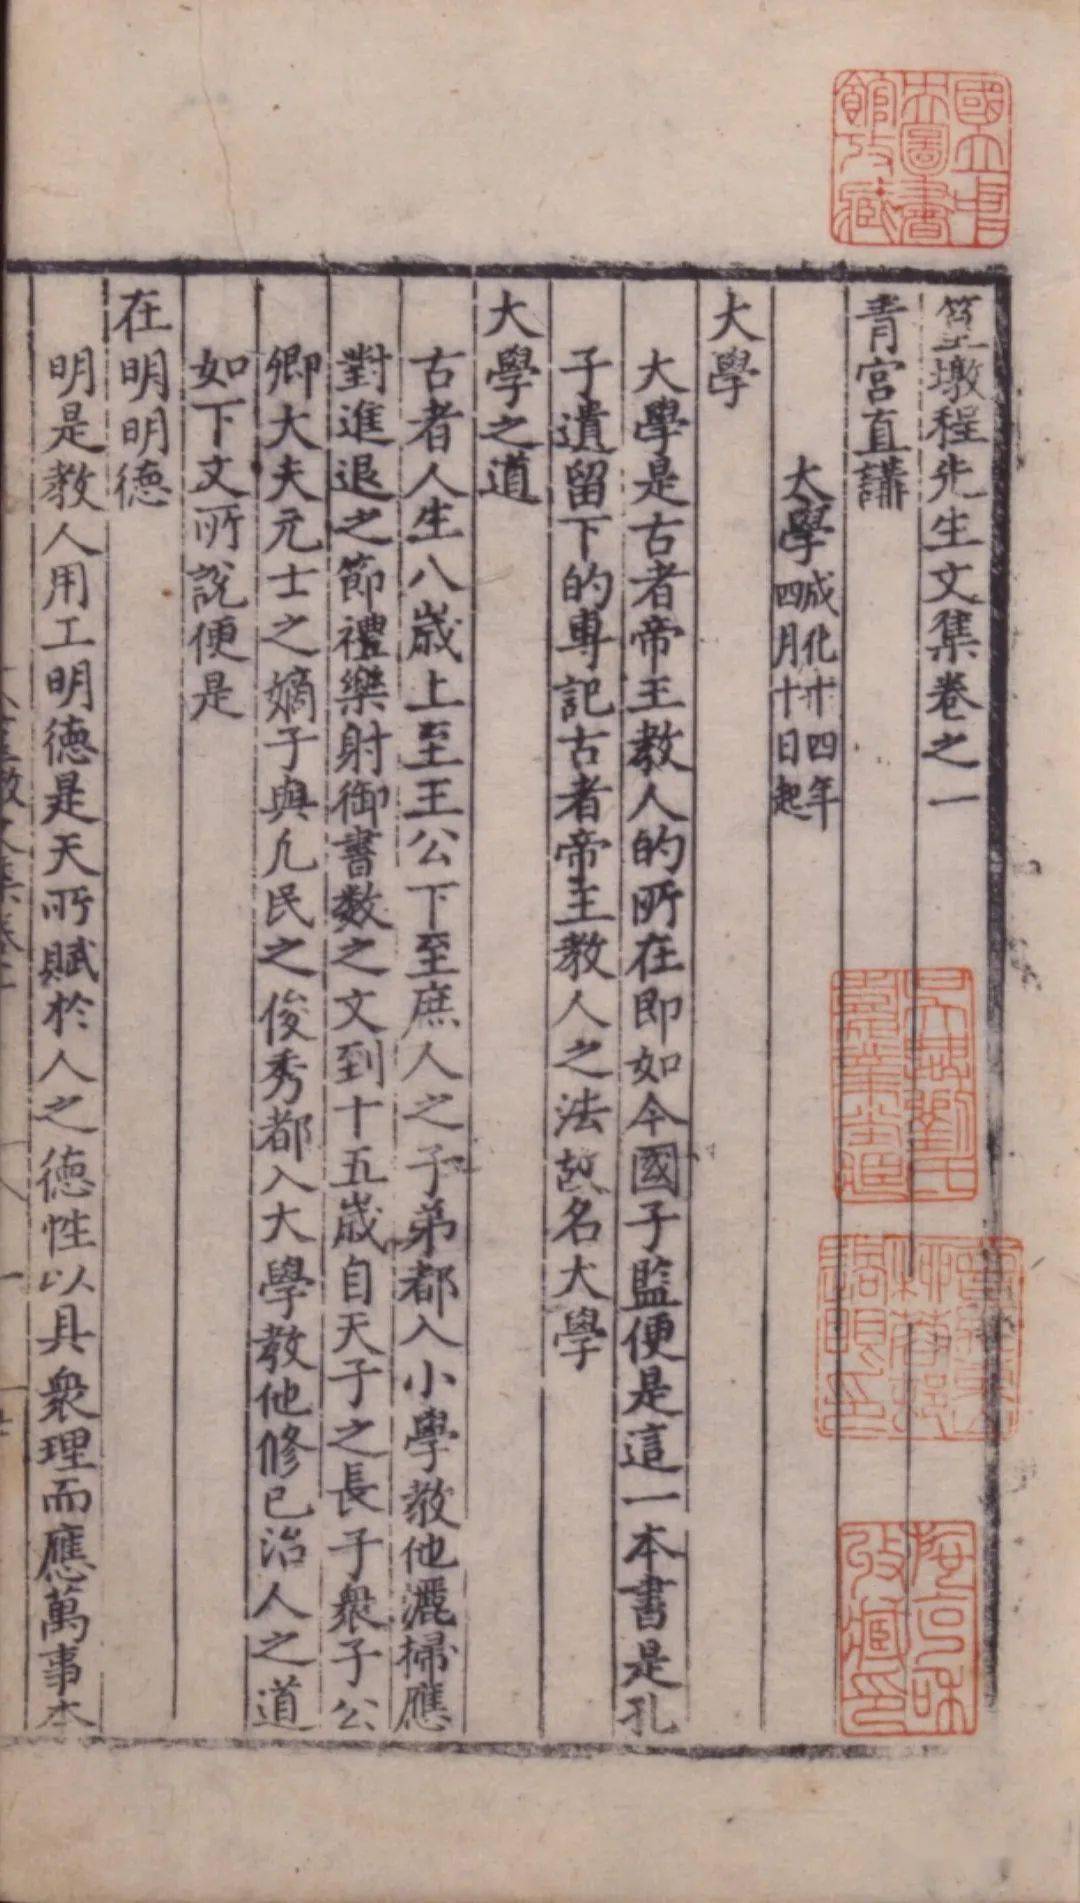 國立中
央圖書
館收藏
篁墩程先生文集卷之一
青宮直講
大學成化廿四年
四月十日起
大學
大學是古者帝王教人的所在即如今國子監便是這一本書是孔
子遺留下的專記古者帝王教人之法故名大學
大學之道
古者人生八歲上至王公下至庶人之子弟都入小學教他灑掃應
對進退之節禮樂射御書數之文到十五歲自天子之長子衆子公
卿大夫元士之嫡子與凢民之俊秀都入大學教他修己治人之道
如下文所說便是
在明明德
明是教人用工明德是天所賦於人之德性以具衆理而應萬事本
吳興劉氏
嘉業堂藏